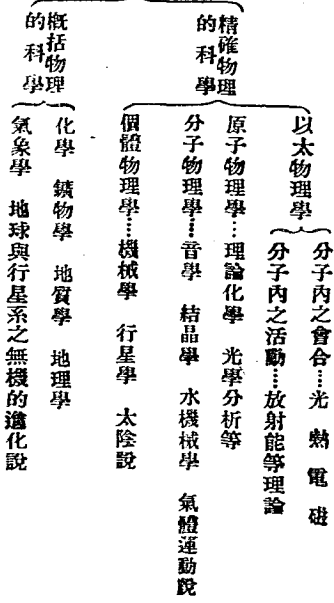 精確物理
的科學
以太物理學
分子內之會合……光 熱 電 磁
分子內之活動……放射能等理論
原子物理學……理論化學 光學分析等
分子物理學……音學 結晶學 水機械學 氣體運動說
個體物理學……機械學 行星學 太陰說
概括物理
的科學
化學 鑛物學 地質學 地理學
氣象學 地球與行星系之無機的進化說